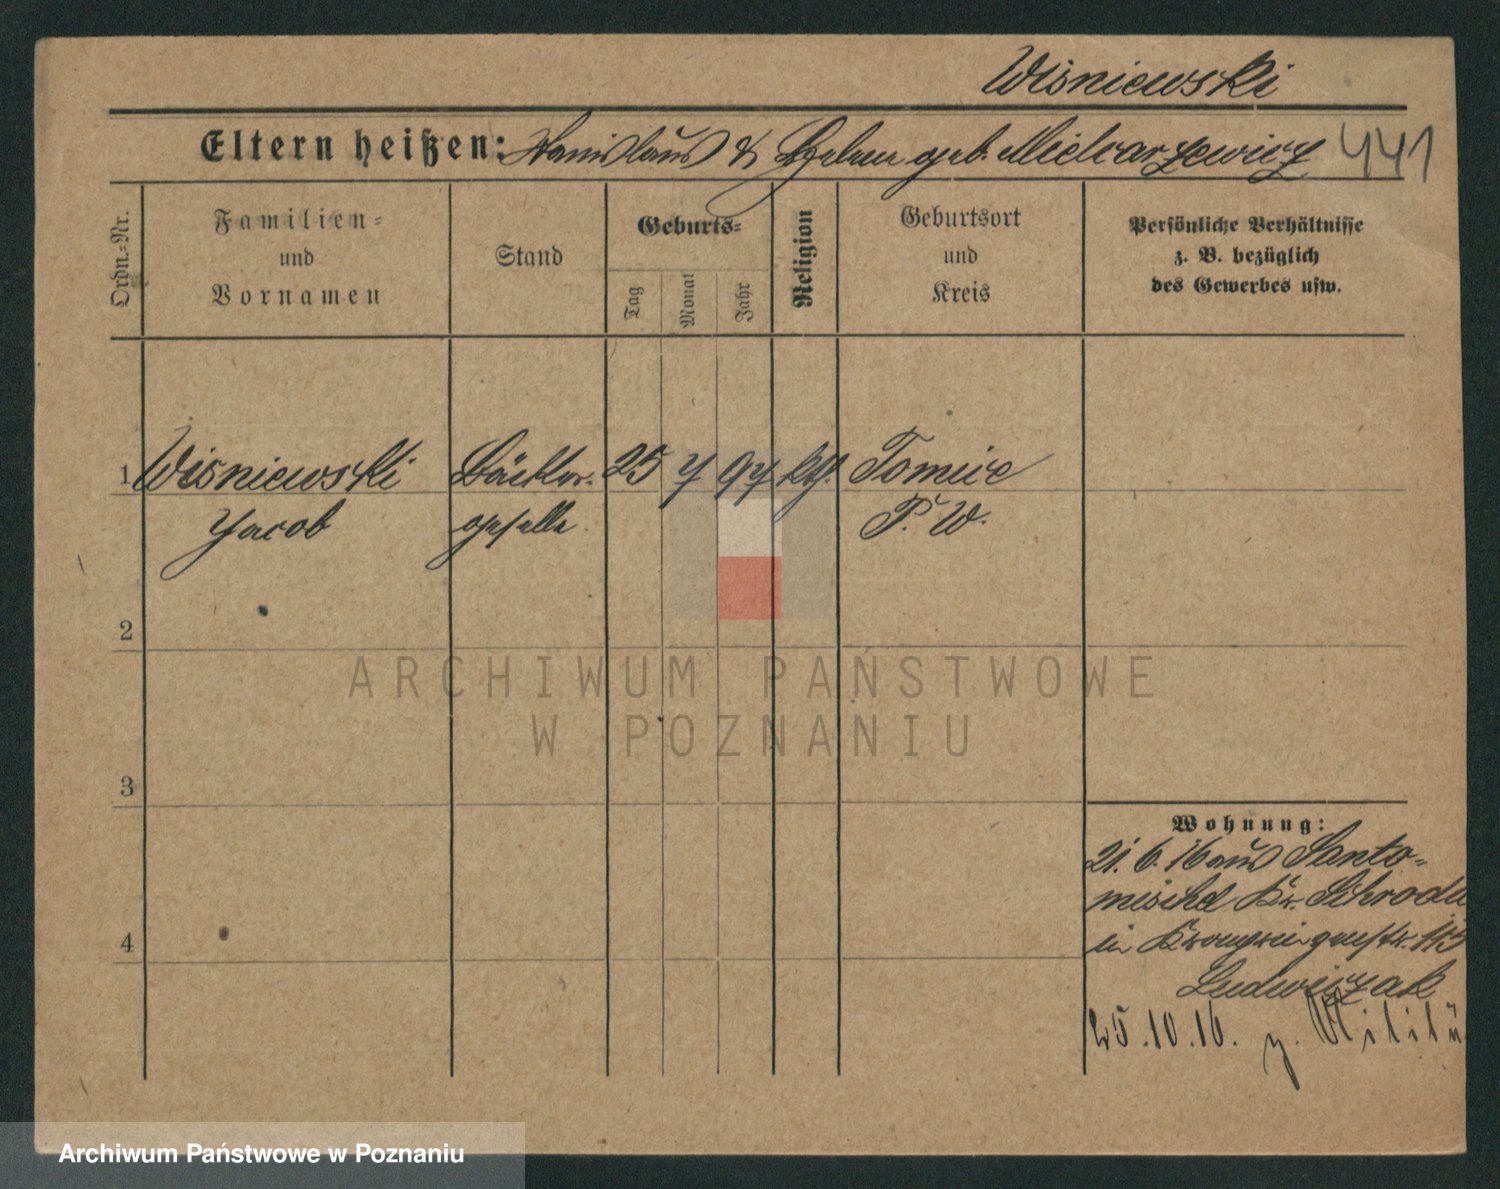 Wisniewski
Eltern heißen: Stanislaus & Helene geb. Mielcarzewicz 441
Ordn.-Nr.
Familien- und Vornamen
Stand
Geburts-
Tag Monat Jahr
Religion
Geburtsort und Kreis
Persönliche Verhältnisse
z. B. bezüglich
des Gewerbes usw.
1 Wisniewski Bäcker- 25 7 97 kth. Tomice
Jacob geselle P. W.
2
3
4
Wohnung:
21. 6. 16 aus Santo-
mischel Kr. Schroda
in Kronprinzenstr. 115
Ludwiczak
25.10.16. z. Militä
ARCHIWUM PAŃSTWOWE
W POZNANIU
Archiwum Państwowe w Poznaniu